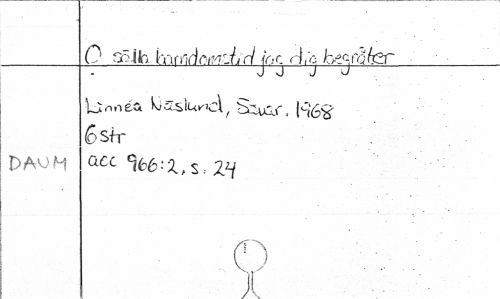 O sälla barndomstid jag dig begråter
Linnéa Näslund, Sävar, 1968
6 str
DAUM acc 966:2, s. 24